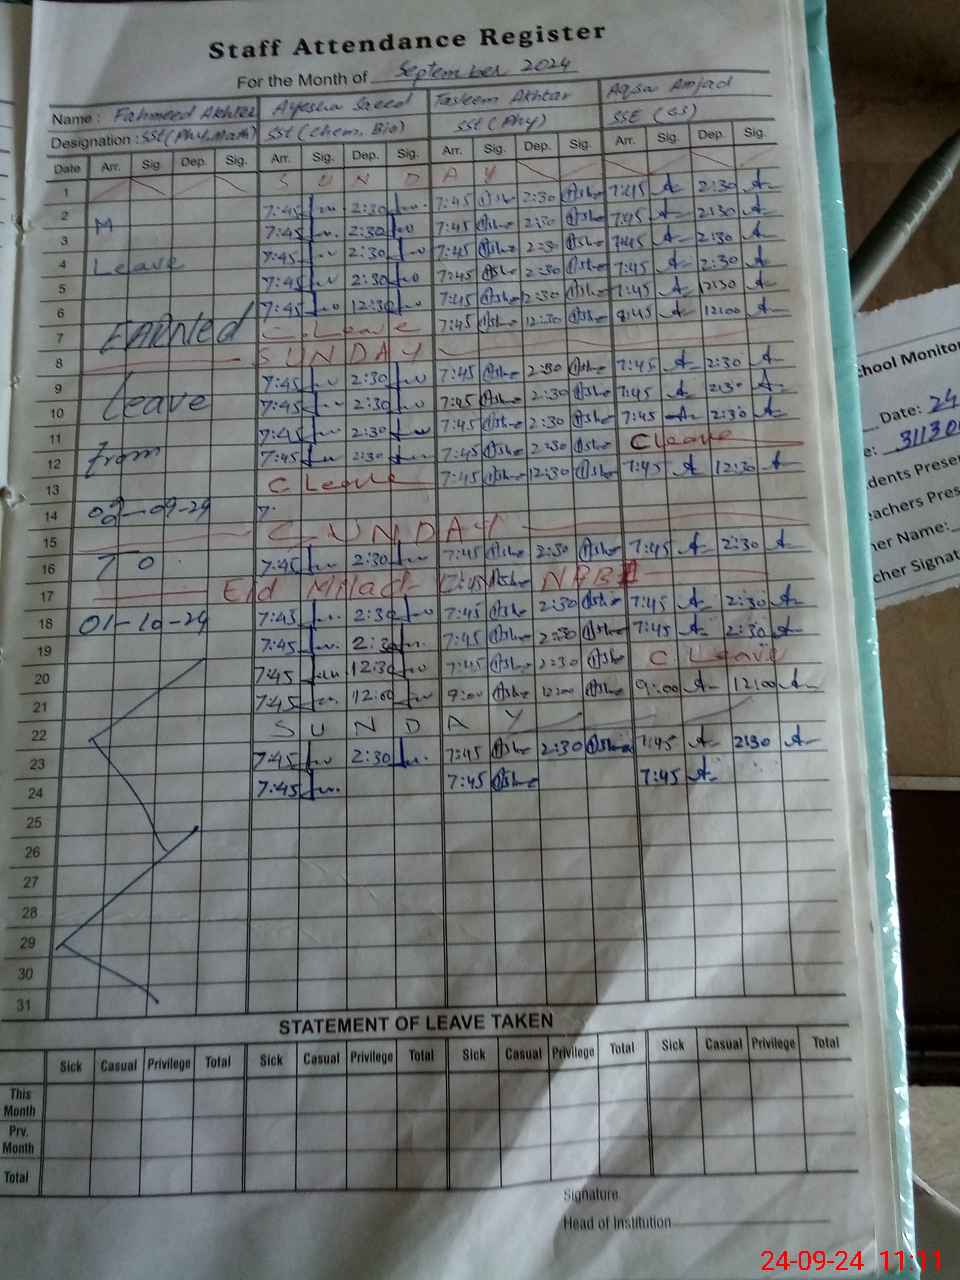 Staff Attendance Register
For the Month of September 2024
Name : Fahmeed Akhter Ayesha Saeed Tasleem Akhtar Aqsa Amjad
Designation : SSt (Phy, Math) SSt (Chem, Bio) SSt (Phy) SSE (CS)
Date Arr. Sig. Dep. Sig. Arr. Sig. Dep. Sig. Arr. Sig. Dep. Sig. Arr. Sig. Dep. Sig.
1 S U N D A Y
2 M 7:45 2:30 7:45 2:30 7:45 2:30
3 7:45 2:30 7:45 2:30 7:45 2:30
4 Leave 7:45 2:30 7:45 2:30 7:45 2:30
5 7:45 2:30 7:45 2:30 7:45 2:30
6 7:45 12:30 7:45 2:30 7:45 12:30
7 C. Leave 7:45 12:30 8:45 12:00
8 SUNDAY
9 7:45 2:30 7:45 2:30 7:45 2:30
10 Leave 7:45 2:30 7:45 2:30 7:45 2:30
11 7:45 2:30 7:45 2:30 7:45 2:30
12 From 7:45 2:30 7:45 2:30 C leave
13 C Leave 7:45 12:30 7:45 12:30
14 -09-24 7:
15 SUNDAY
16 TO 7:45 2:30 7:45 2:30 7:45 2:30
17 Eid Milad 7:45
18 01-10-24 7:45 2:30 7:45 2:30 7:45 2:30
19 7:45 2:30 7:45 2:30 7:45 2:30
20 7:45 12:30 7:45 2:30 C. Leave
21 7:45 12:00 9:00 12:00 9:00 12:00
22 S U N D A Y
23 7:45 2:30 7:45 2:30 7:45 2:30
24 7:45 7:45 7:45
25
26
27
28
29
30
31
STATEMENT OF LEAVE TAKEN
Sick Casual Privilege Total Sick Casual Privilege Total Sick Casual Privilege Total Sick Casual Privilege Total
This Month
Prv. Month
Total
Signature
Head of Institution
chool Monitor
Date: 24
e: 31130
dents Presen
eachers Pres
her Name:
cher Signat
24-09-24 11:11